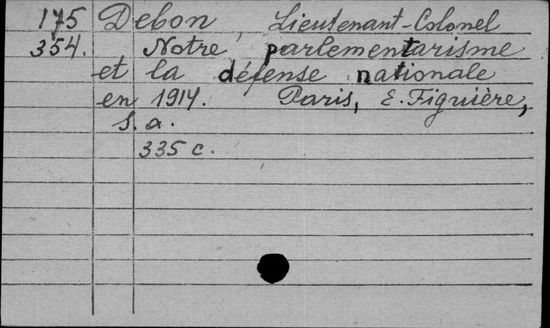 175 Debon, Lieutenant-Colonel
354. Notre parlementarisme
et la défense nationale
en 1914. Paris, E. Figuière,
S. a.
335 c.